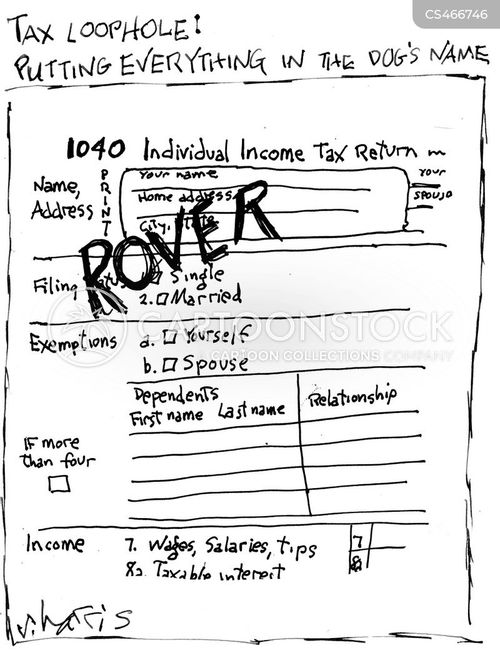 CS466746
TAX LOOPHOLE!
PUTTING EVERYTHING IN THE DOG'S NAME
1040 Individual Income Tax Return
Name, Address
PRINT
Your name
Home address
City, State
YOUR
SPOUSE
ROVER
Filing Status
1. Single
2. Married
CARTOONSTOCK
CARTOON COLLECTIONS COMPANY
Exemptions
a. Yourself
b. Spouse
Dependents
First name Last name
Relationship
IF more than four
Income
7. Wages, Salaries, tips
7
8a. Taxable interest
8a
S. Harris